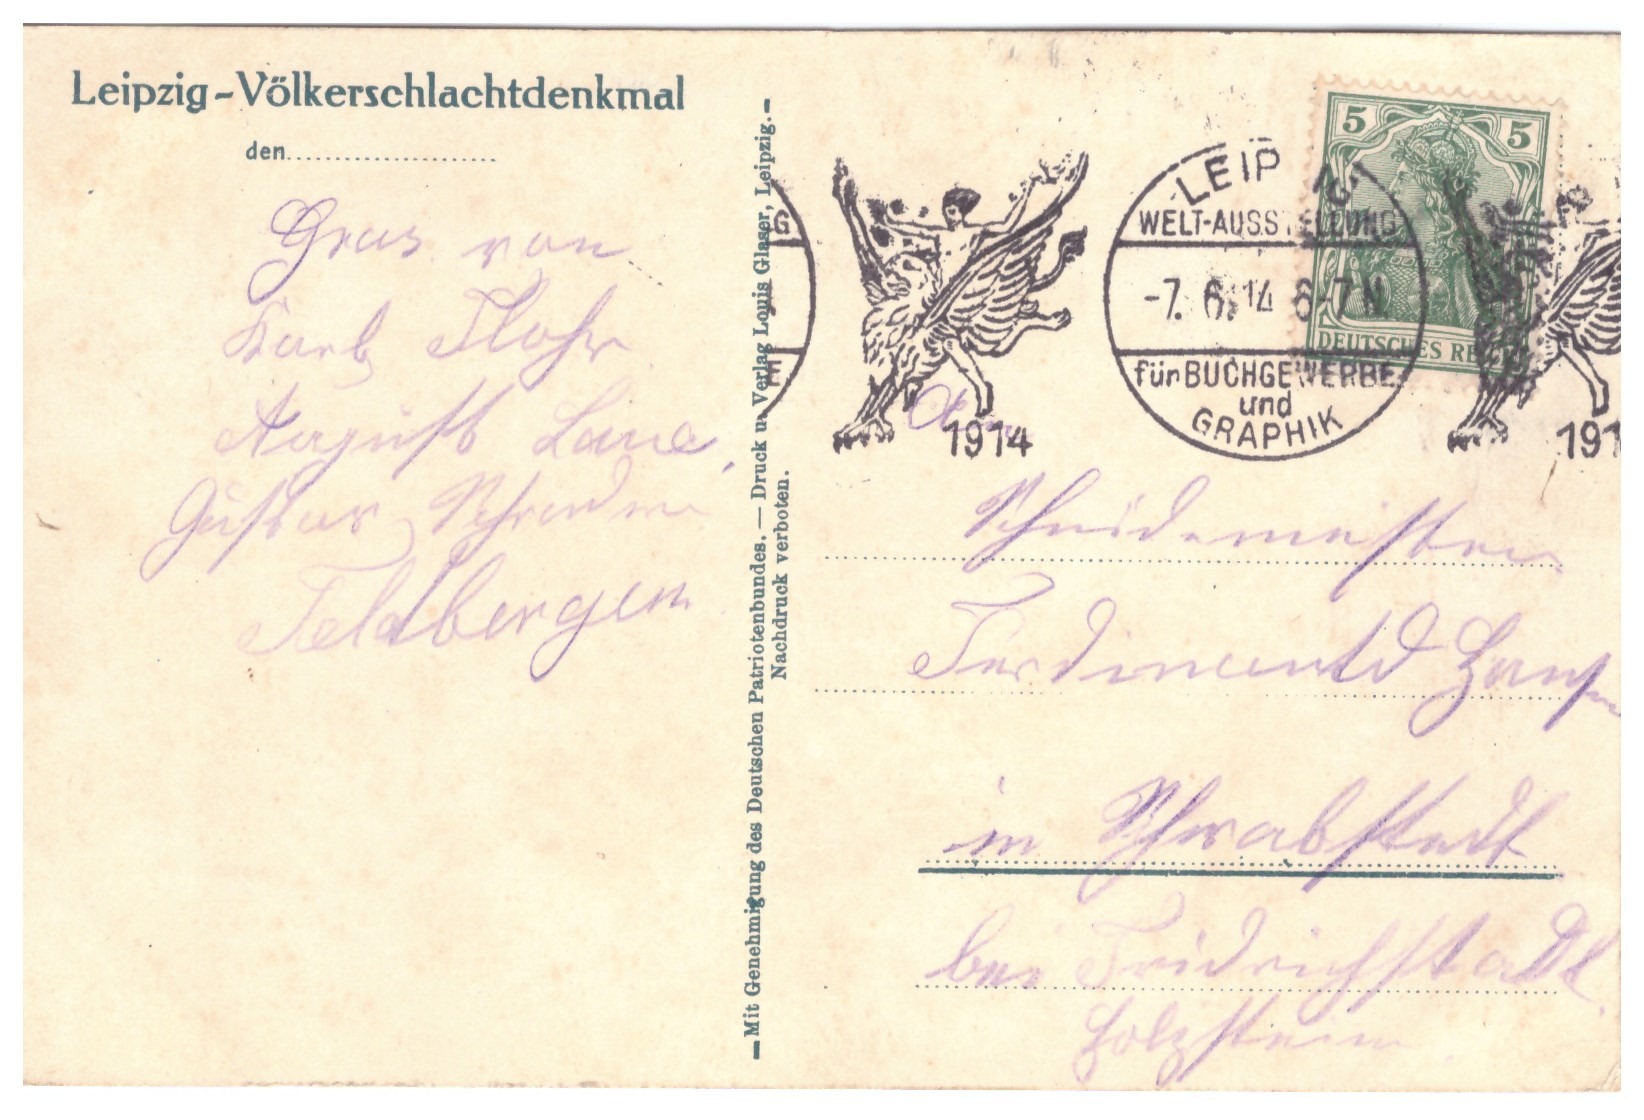 Leipzig-Völkerschlachtdenkmal
den
Grus von
Karl Flohr
August
Gustav
Feldbergen
— Mit Genehmigung des Deutschen Patriotenbundes. — Druck u. Verlag Louis Glaser, Leipzig. —
Nachdruck verboten.
LEIPZIG
WELT-AUSSTELLUNG
-7. 6. 14 6-7 N
für BUCHGEWERBE
und
GRAPHIK
1914
5 5
DEUTSCHES REICH
An
Schneidemeister
Ferdinand
in Schwabstedt
bei Fridrichstadt
Holzstein